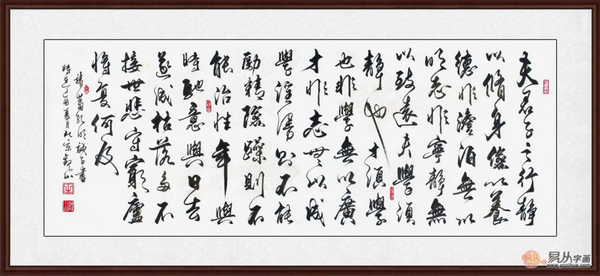 夫君子之行静
以脩身儉以養
德非澹泊無以
明志非寧静無
以致遠夫學須
静也才須學
也非學無以廣
才非志無以成
學淫漫則不能
勵精險躁則不
能治性年與
時馳意與日去
遂成枯落多不
接世悲守窮廬
將復何及
諸葛孔明誡子書
時在丁酉夏月北京
易从字画